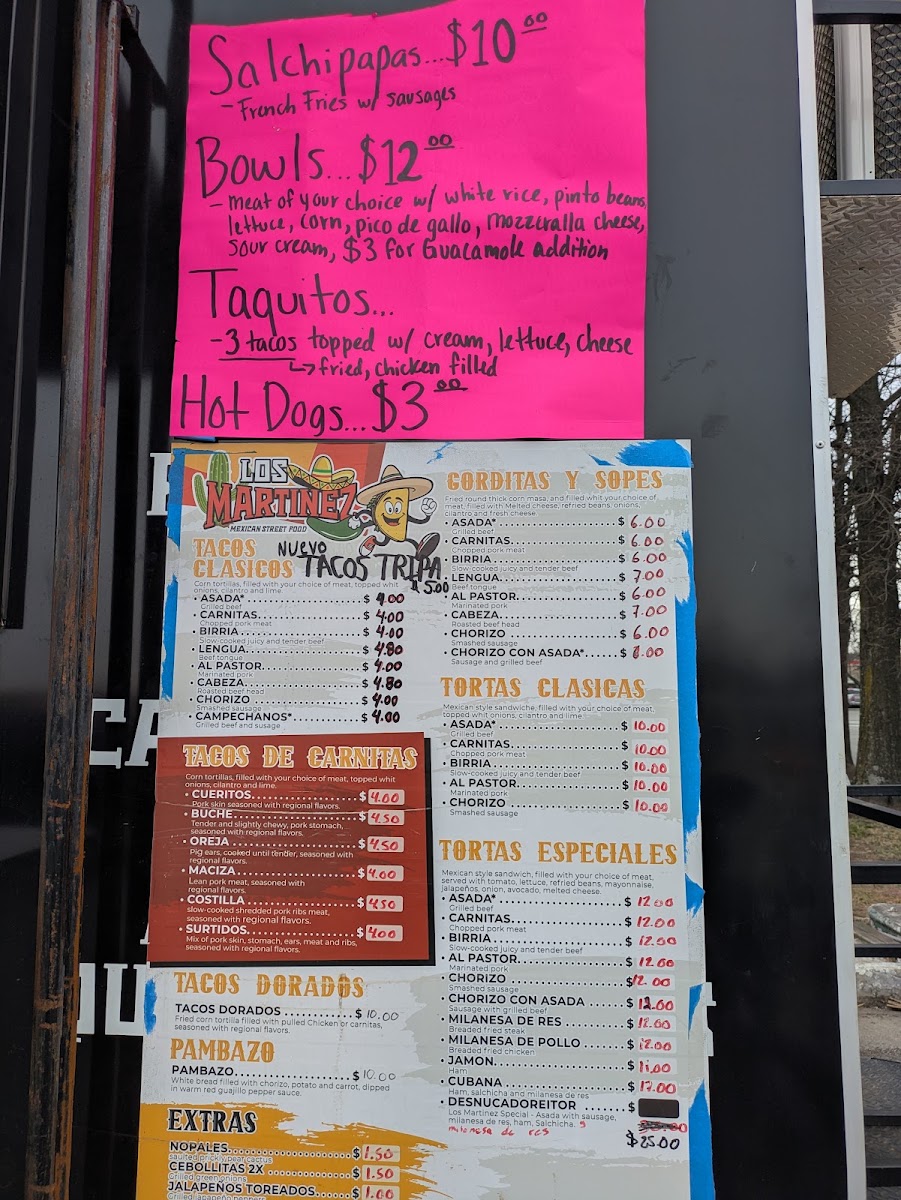 Salchipapas...$10.00
- French Fries w/ sausages
Bowls...$12.00
- meat of your choice w/ white rice, pinto beans,
lettuce, corn, pico de gallo, mozzeralla cheese,
sour cream, $3 for Guacamole addition
Taquitos...
- 3 tacos topped w/ cream, lettuce, cheese
↳ fried, chicken filled
Hot Dogs...$3.00
LOS
MARTINEZ
MEXICAN STREET FOOD
TACOS
CLASICOS
NUEVO
TACOS TRIPA
$5.00
Corn tortillas, filled with your choice of meat, topped whit
onions, cilantro and lime.
• ASADA* $ 4.00
Grilled beef
CARNITAS $ 4.00
Chopped pork meat
• BIRRIA $ 4.00
Slow-cooked juicy and tender beef
• LENGUA $ 4.80
Beef tongue
• AL PASTOR $ 4.00
Marinated pork
• CABEZA $ 4.80
Roasted beef head
• CHORIZO $ 4.00
Smashed sausage
• CAMPECHANOS* $ 4.00
Grilled beef and susage
TACOS DE CARNITAS
Corn tortillas, filled with your choice of meat, topped whit
onions, cilantro and lime.
• CUERITOS $ 4.00
Pork skin seasoned with regional flavors.
• BUCHE $ 4.50
Tender and slightly chewy, pork stomach,
seasoned with regional flavors.
• OREJA $ 4.50
Pig ears, cooked until tender, seasoned with
regional flavors.
• MACIZA $ 4.00
Lean pork meat, seasoned with
regional flavors.
• COSTILLA $ 4.50
slow-cooked shredded pork ribs meat,
seasoned with regional flavors.
• SURTIDOS $ 4.00
Mix of pork skin, stomach, ears, meat and ribs,
seasoned with regional flavors.
TACOS DORADOS
TACOS DORADOS $ 10.00
Fried corn tortilla filled with pulled Chicken or carnitas,
seasoned with regional flavors.
PAMBAZO
PAMBAZO $ 10.00
White bread filled with chorizo, potato and carrot, dipped
in warm red guajillo pepper sauce.
EXTRAS
NOPALES $ 1.50
sauted prickly pear cactus
CEBOLLITAS 2X $ 1.50
Grilled green onions
JALAPEÑOS TOREADOS $ 1.00
Grilled jalapeño peppers
GORDITAS Y SOPES
Fried round thick corn masa, and filled whit your choice of
meat, filled with Melted cheese, refried beans, onions,
cilantro and fresh cheese
• ASADA* $ 6.00
Grilled beef
• CARNITAS $ 6.00
Chopped pork meat
• BIRRIA $ 6.00
Slow-cooked juicy and tender beef
• LENGUA $ 7.00
Beef tongue
• AL PASTOR $ 6.00
Marinated pork
• CABEZA $ 7.00
Roasted beef head
• CHORIZO $ 6.00
Smashed sausage
• CHORIZO CON ASADA* $ 8.00
Sausage and grilled beef
TORTAS CLASICAS
Mexican style sandwiche, filled with your choice of meat,
topped whit onions, cilantro and lime.
• ASADA* $ 10.00
Grilled beef
• CARNITAS $ 10.00
Chopped pork meat
• BIRRIA $ 10.00
Slow-cooked juicy and tender beef
AL PASTOR $ 10.00
Marinated pork
• CHORIZO $ 10.00
Smashed sausage
TORTAS ESPECIALES
Mexican style sandwich, filled with your choice of meat,
served with tomato, lettuce, refried beans, mayonnaise,
jalapeños, onion, avocado, melted cheese.
• ASADA* $ 12.00
Grilled beef
CARNITAS $ 12.00
Chopped pork meat
• BIRRIA $ 12.00
Slow-cooked juicy and tender beef
• AL PASTOR $ 12.00
Marinated pork
• CHORIZO $ 12.00
Smashed sausage
• CHORIZO CON ASADA $ 12.00
Sausage with grilled beef
• MILANESA DE RES $ 12.00
Breaded fried steak
• MILANESA DE POLLO $ 12.00
Breaded fried chicken
• JAMON $ 11.00
Ham
• CUBANA $ 17.00
Ham, salchicha and milanesa de res
• DESNUCADOREITOR $
Los Martinez Special - Asada with sausage,
milanesa de res, ham, Salchicha.
milanesa de res
$25.00